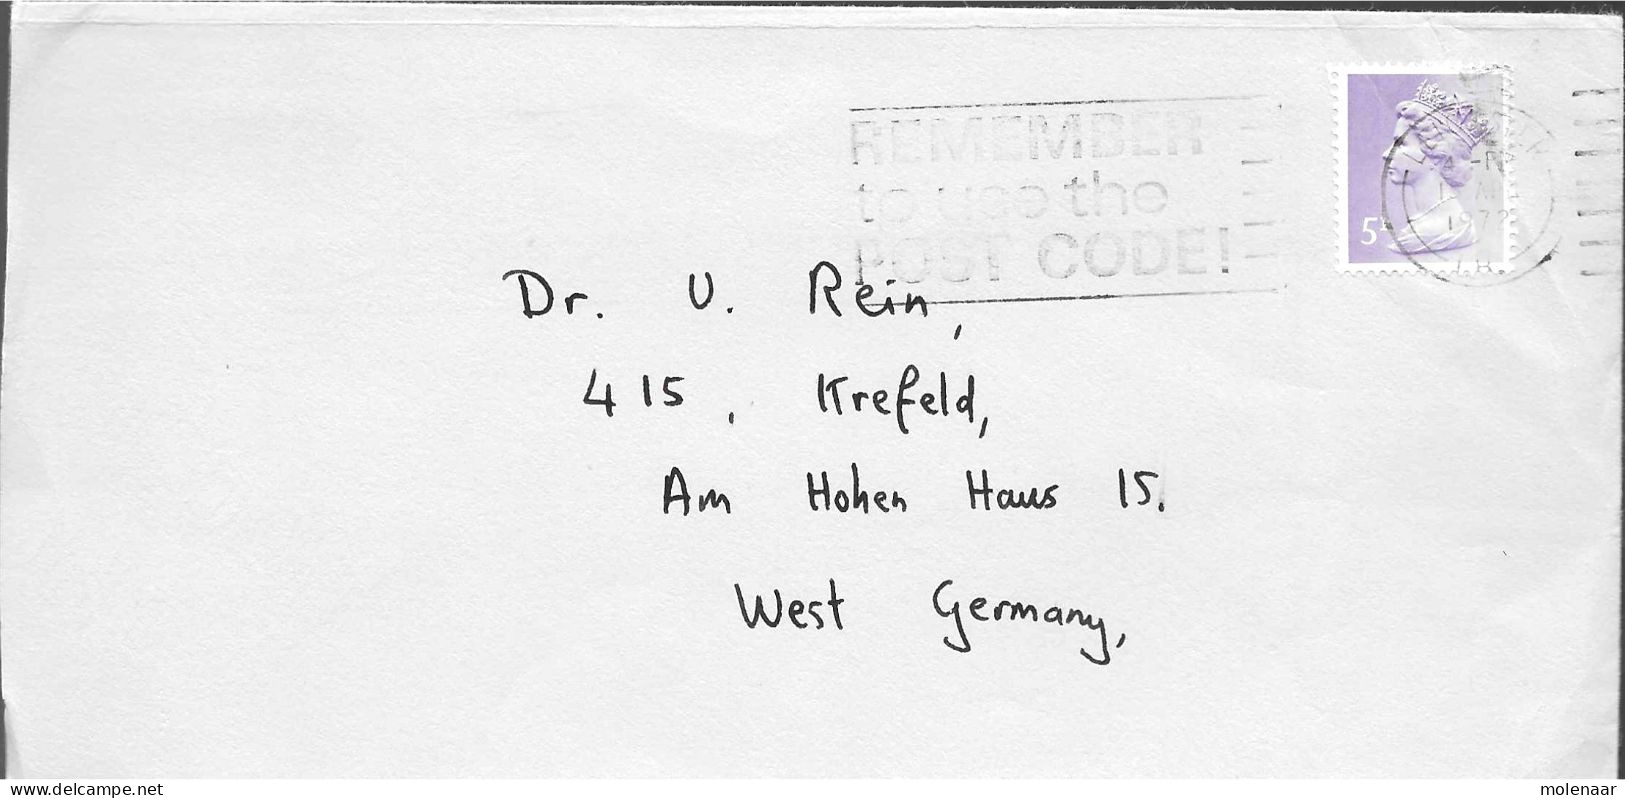 REMEMBER
to use the
POST CODE!
5P
1972
Dr. U. Rein,
415, Krefeld,
Am Hohen Haus 15.
West Germany,
www.delcampe.net
molenaar